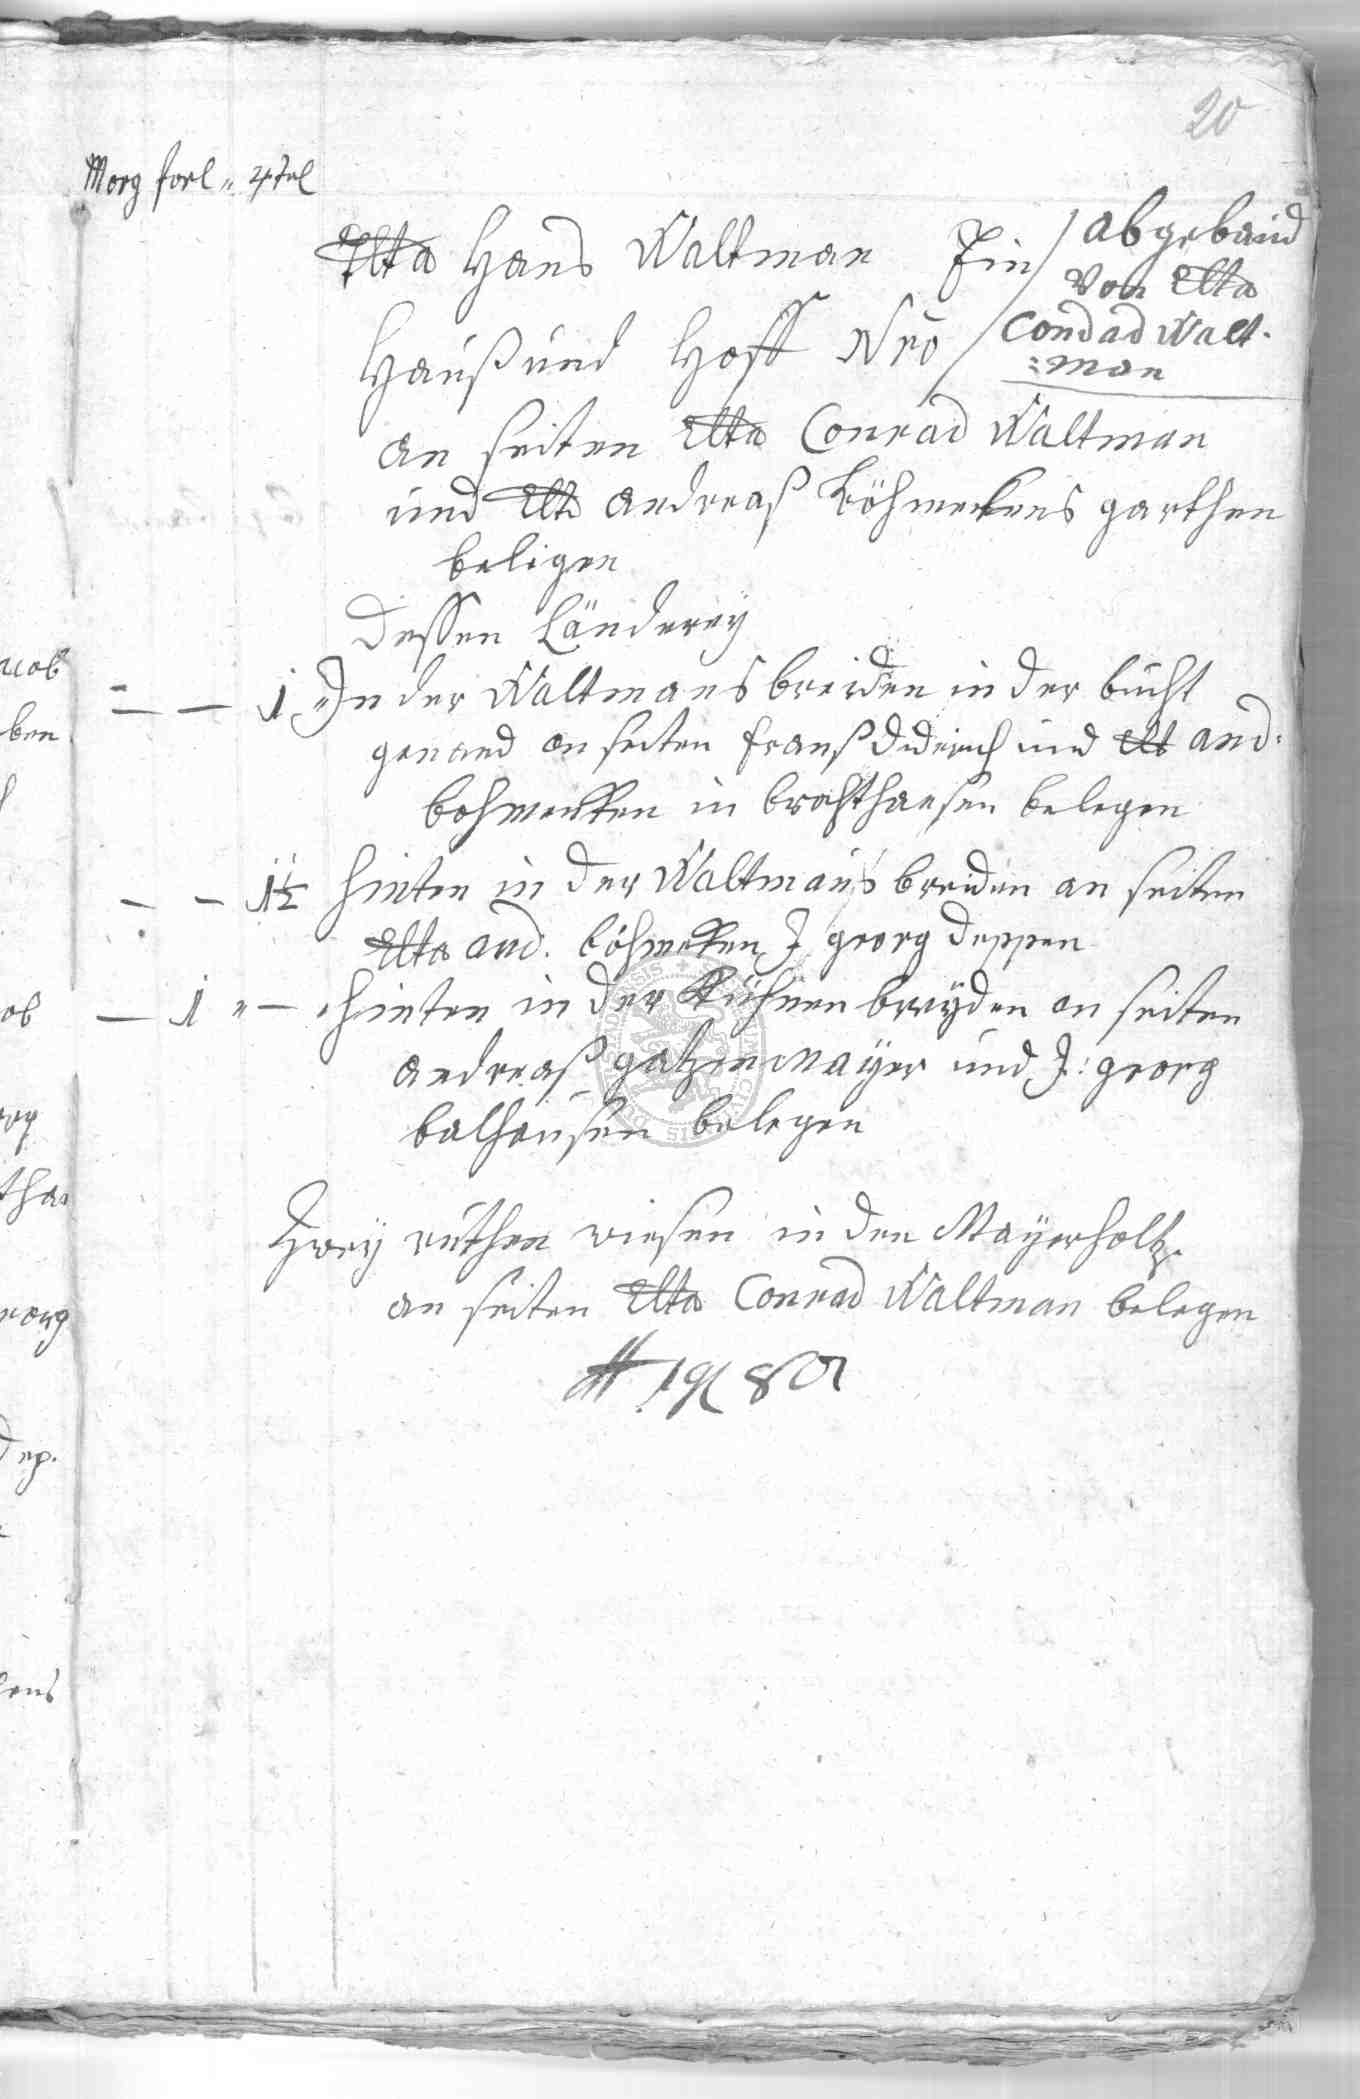 20
Morg forl " 4tel
Elta Hans Waltman Ein
Hauß und Hoff Nro
/ abgebaud
von Elta
Condad Walt-
=man
an seiten Elta Conrad Waltman
und Elta andreaß Böhmekens garthen
beligen
Dessen Länderey
— — 1 In der Waltmans breiden in der bucht
genand an seiten franß Diderich und Elt and:
bohmecken in brachthausen belegen
— — 1½ hinten in der Waltmans breiden an seiten
Elta and. böhmeken J georg Deppen
— 1 " — hinten in der Kühnen breyden an seiten
andreaß galzenmayer und J: georg
balhausen belegen
Zwey ruthen wiesen in den Mayerholtz
an seiten Elta Conrad Waltman belegen
acob
ben
ob
org
tha
eorg
Dep.
kens